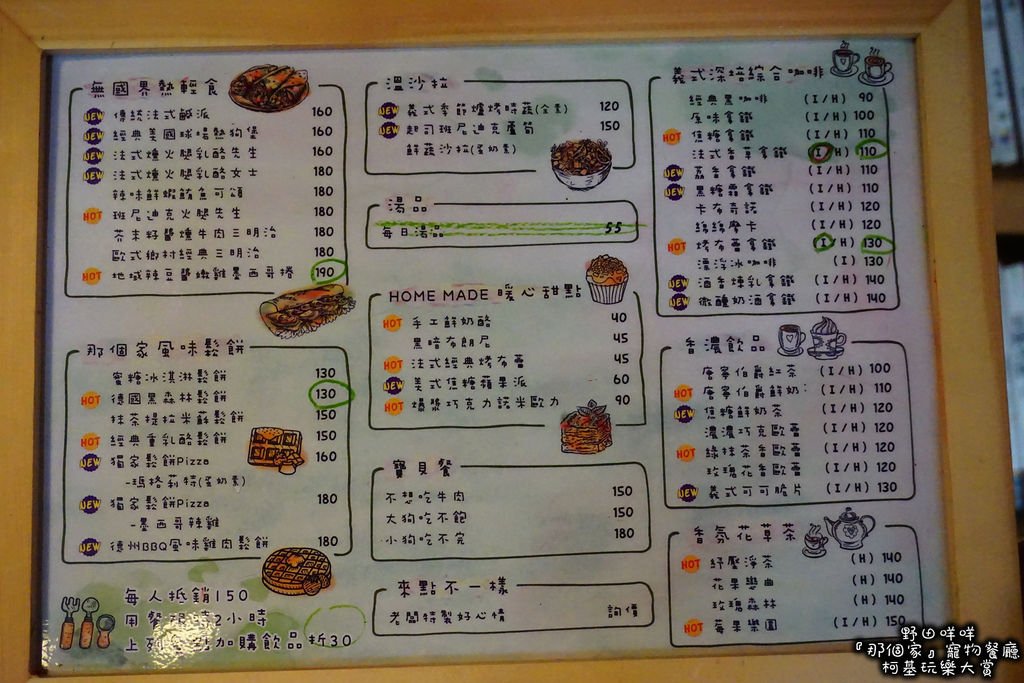 無國界熱輕食
NEW 傳統法式鹹派 160
NEW 經典美國球場熱狗堡 160
NEW 法式燻火腿乳酪先生 160
NEW 法式燻火腿乳酪女士 180
辣味鮮蝦鮪魚可頌 180
HOT 班尼迪克火腿先生 180
芥末籽醬燻牛肉三明治 180
歐式鄉村經典三明治 180
HOT 地域辣豆醬嫩雞墨西哥捲 190
那個家風味鬆餅
蜜糖冰淇淋鬆餅 130
HOT 德國黑森林鬆餅 130
抹茶提拉米蘇鬆餅 150
HOT 經典重乳酪鬆餅 150
NEW 獨家鬆餅Pizza 160
-瑪格莉特(蛋奶素)
NEW 獨家鬆餅Pizza 180
-墨西哥辣雞
NEW 德州BBQ風味雞肉鬆餅 180
每人抵銷150
用餐限時2小時
上列 加購飲品折30
溫沙拉
NEW 義式季節爐烤時蔬(全素) 120
NEW 起司班尼迪克蘆筍 150
鮮蔬沙拉(蛋奶素)
湯品
每日湯品 55
HOME MADE 暖心甜點
HOT 手工鮮奶酪 40
黑暗布朗尼 45
HOT 法式經典烤布蕾 45
NEW 美式焦糖蘋果派 60
HOT 爆漿巧克力諾米歐力 90
寶貝餐
不想吃牛肉 150
大狗吃不飽 150
小狗吃不完 180
來點不一樣
老闆特製好心情 詢價
義式深焙綜合咖啡
經典黑咖啡 (I/H) 90
原味拿鐵 (I/H) 100
HOT 焦糖拿鐵 (I/H) 110
法式香草拿鐵 (I/H) 110
NEW 荔香拿鐵 (I/H) 110
NEW 黑糖霜拿鐵 (I/H) 110
卡布奇諾 (I/H) 120
綿綿摩卡 (I/H) 120
HOT 烤布蕾拿鐵 (I/H) 130
漂浮冰咖啡 (I) 130
NEW 酒香煉乳拿鐵 (I/H) 140
NEW 微醺奶酒拿鐵 (I/H) 140
香濃飲品
唐寧伯爵紅茶 (I/H) 100
HOT 唐寧伯爵鮮奶: (I/H) 110
NEW 焦糖鮮奶茶 (I/H) 120
濃濃巧克歐蕾 (I/H) 120
HOT 綠抹茶香歐蕾 (I/H) 120
玫瑰花香歐蕾 (I/H) 120
NEW 義式可可脆片 (I/H) 130
香氛花草茶
HOT 紓壓淨茶 (H) 140
花果戀曲 (H) 140
玫瑰森林 (H) 140
HOT 莓果樂園 (I/H) 150
野田咩咩
『那個家』寵物餐廳
柯基玩樂大賞